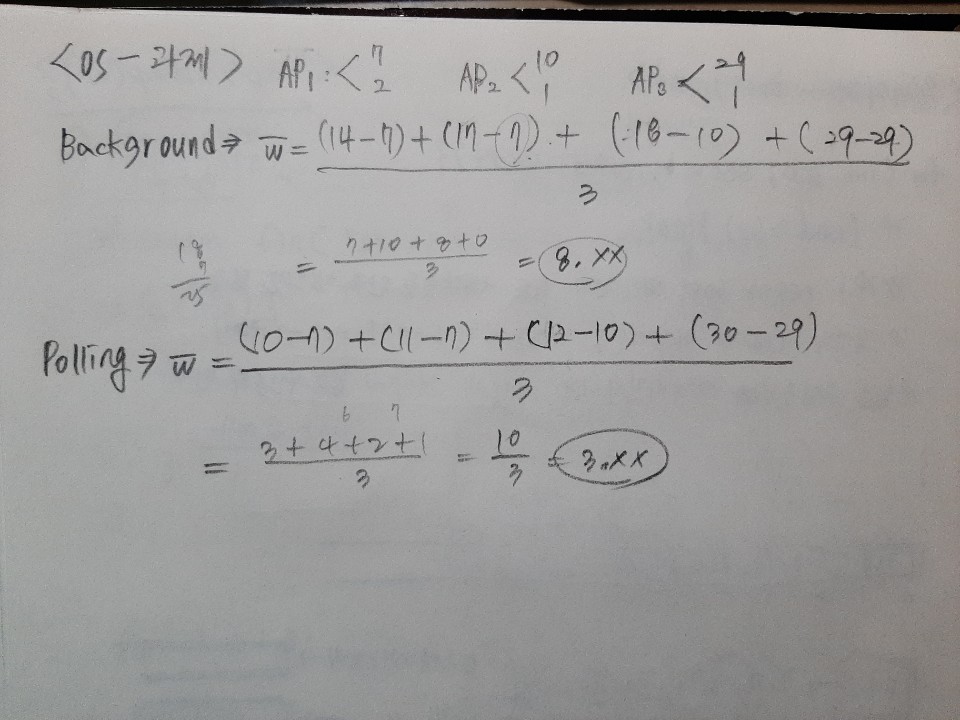 <OS-과제> AP₁:< 7 2 AP₂ < 10 1 AP₃ < 29 1
Background ⇒ w̅ = (14-7)+(17-7)+(18-10)+(29-29)
3
18
7
25
= 7+10+8+0 / 3 = 8.xx
Polling ⇒ w̅ = (10-7)+(11-7)+(12-10)+(30-29)
3
6 7
= 3+4+2+1 / 3 = 10 / 3 = 3.xx